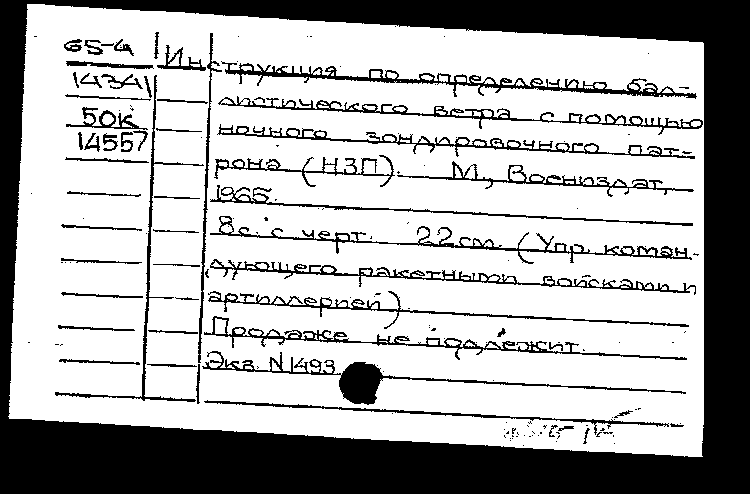 65-4
14341
50к
14557
Инструкция по определению бал-
листического ветра с помощью
ночного зондировочного пат-
рона (НЗП). М., Воениздат,
1965.
8с. с черт. 22 см. (Упр. коман-
дующего ракетными войсками и
артиллерией)
Продаже не подлежит.
Экз. N1493